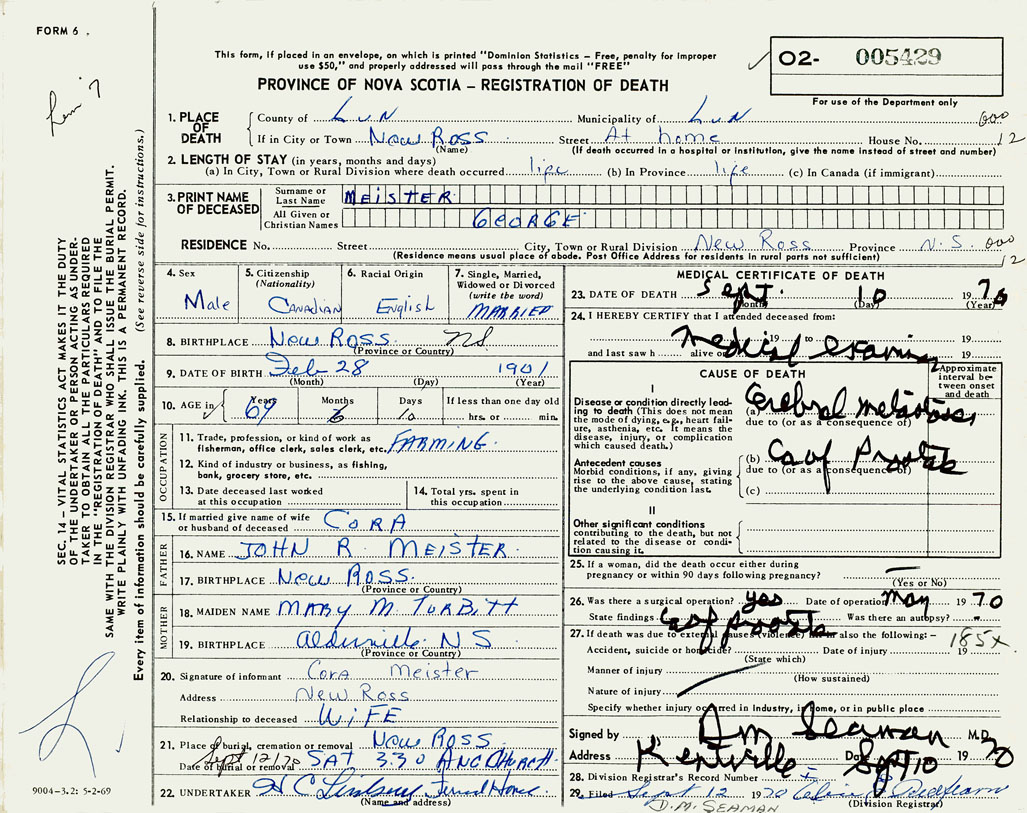 FORM 6
Lem 7
This form, if placed in an envelope, on which is printed "Dominion Statistics - Free, penalty for improper
use $50," and properly addressed will pass through the mail "FREE"
PROVINCE OF NOVA SCOTIA - REGISTRATION OF DEATH
O2- 005429
For use of the Department only
1. PLACE OF DEATH
County of LUN Municipality of LUN 000
If in City or Town New Ross Street At home House No. 12
(Name) (If death occurred in a hospital or institution, give the name instead of street and number)
2. LENGTH OF STAY (in years, months and days)
(a) In City, Town or Rural Division where death occurred life (b) In Province life (c) In Canada (if immigrant)
3. PRINT NAME OF DECEASED
Surname or Last Name MEISTER
All Given or Christian Names GEORGE
RESIDENCE No. Street City, Town or Rural Division New Ross Province N.S. 000
(Residence means usual place of abode. Post Office Address for residents in rural parts not sufficient) 12
4. Sex Male
5. Citizenship (Nationality) CANADIAN
6. Racial Origin English
7. Single, Married, Widowed or Divorced (write the word) MARRIED
8. BIRTHPLACE New Ross NS
(Province or Country)
9. DATE OF BIRTH Feb 28 1901
(Month) (Day) (Year)
10. AGE in Years 69 Months 6 Days 10 If less than one day old hrs. or min.
OCCUPATION
11. Trade, profession, or kind of work as
fisherman, office clerk, sales clerk, etc. FARMING
12. Kind of industry or business, as fishing,
bank, grocery store, etc.
13. Date deceased last worked
at this occupation
14. Total yrs. spent in
this occupation
15. If married give name of wife
or husband of deceased CORA
FATHER
16. NAME JOHN R. MEISTER
17. BIRTHPLACE New Ross
(Province or Country)
MOTHER
18. MAIDEN NAME MARY M TURBITT
19. BIRTHPLACE Alderville NS
(Province or Country)
20. Signature of informant Cora Meister
Address New Ross
Relationship to deceased WIFE
21. Place of burial, cremation or removal New Ross
Date of burial or removal Sept 12/70 SAT 3.30 ANG CHURCH
22. UNDERTAKER H C Lindsay Funeral Home
(Name and address)
MEDICAL CERTIFICATE OF DEATH
23. DATE OF DEATH Sept. 10 1970
(Month) (Day) (Year)
24. I HEREBY CERTIFY that I attended deceased from:
19 to 19
and last saw h alive on 19
Medical examiner
CAUSE OF DEATH
Approximate interval between onset and death
I
Disease or condition directly leading to death (This does not mean the mode of dying, e.g., heart failure, asthenia, etc. It means the disease, injury, or complication which caused death.)
(a) Cerebral metastases
due to (or as a consequence of)
Antecedent causes
Morbid conditions, if any, giving rise to the above cause, stating the underlying condition last.
(b) Ca of Prostate
due to (or as a consequence of)
(c)
II
Other significant conditions
contributing to the death, but not related to the disease or condition causing it.
25. If a woman, did the death occur either during
pregnancy or within 90 days following pregnancy?
(Yes or No)
26. Was there a surgical operation? yes Date of operation May 1970
State findings Ca of prostate Was there an autopsy? -
27. If death was due to external causes (violence) fill in also the following: -
185X
Accident, suicide or homicide? Date of injury 19
(State which)
Manner of injury
(How sustained)
Nature of injury
Specify whether injury occurred in Industry, in home, or in public place
Signed by DM Seaman M.D.
Address Kentville Date Sept 10 1970
28. Division Registrar's Record Number
29. Filed Sept 12 1970
D.M. SEAMAN (Division Registrar)
SEC. 14 - VITAL STATISTICS ACT MAKES IT THE DUTY
OF THE UNDERTAKER OR PERSON ACTING AS UNDERTAKER TO OBTAIN ALL THE PARTICULARS REQUIRED
IN THE "REGISTRATION OF DEATH" AND TO FILE THE
SAME WITH THE DIVISION REGISTRAR WHO SHALL ISSUE THE BURIAL PERMIT.
WRITE PLAINLY WITH UNFADING INK. THIS IS A PERMANENT RECORD.
Every item of information should be carefully supplied. (See reverse side for instructions.)
9004-3.2: 5-2-69